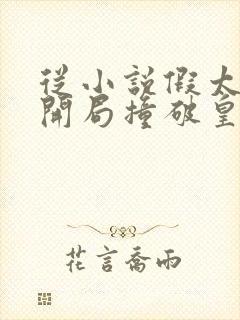 從小說假太
開局撞破皇
花言喬雨